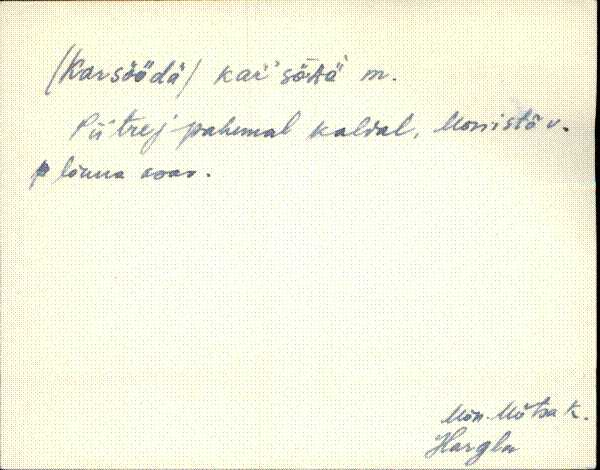 (Karsöödä) kaŕsö̀ttä m.
Piitrej pahemal kaldal, Monistõ v.
lõuna osav.
Mõn-Mõtsa k.
Hargla